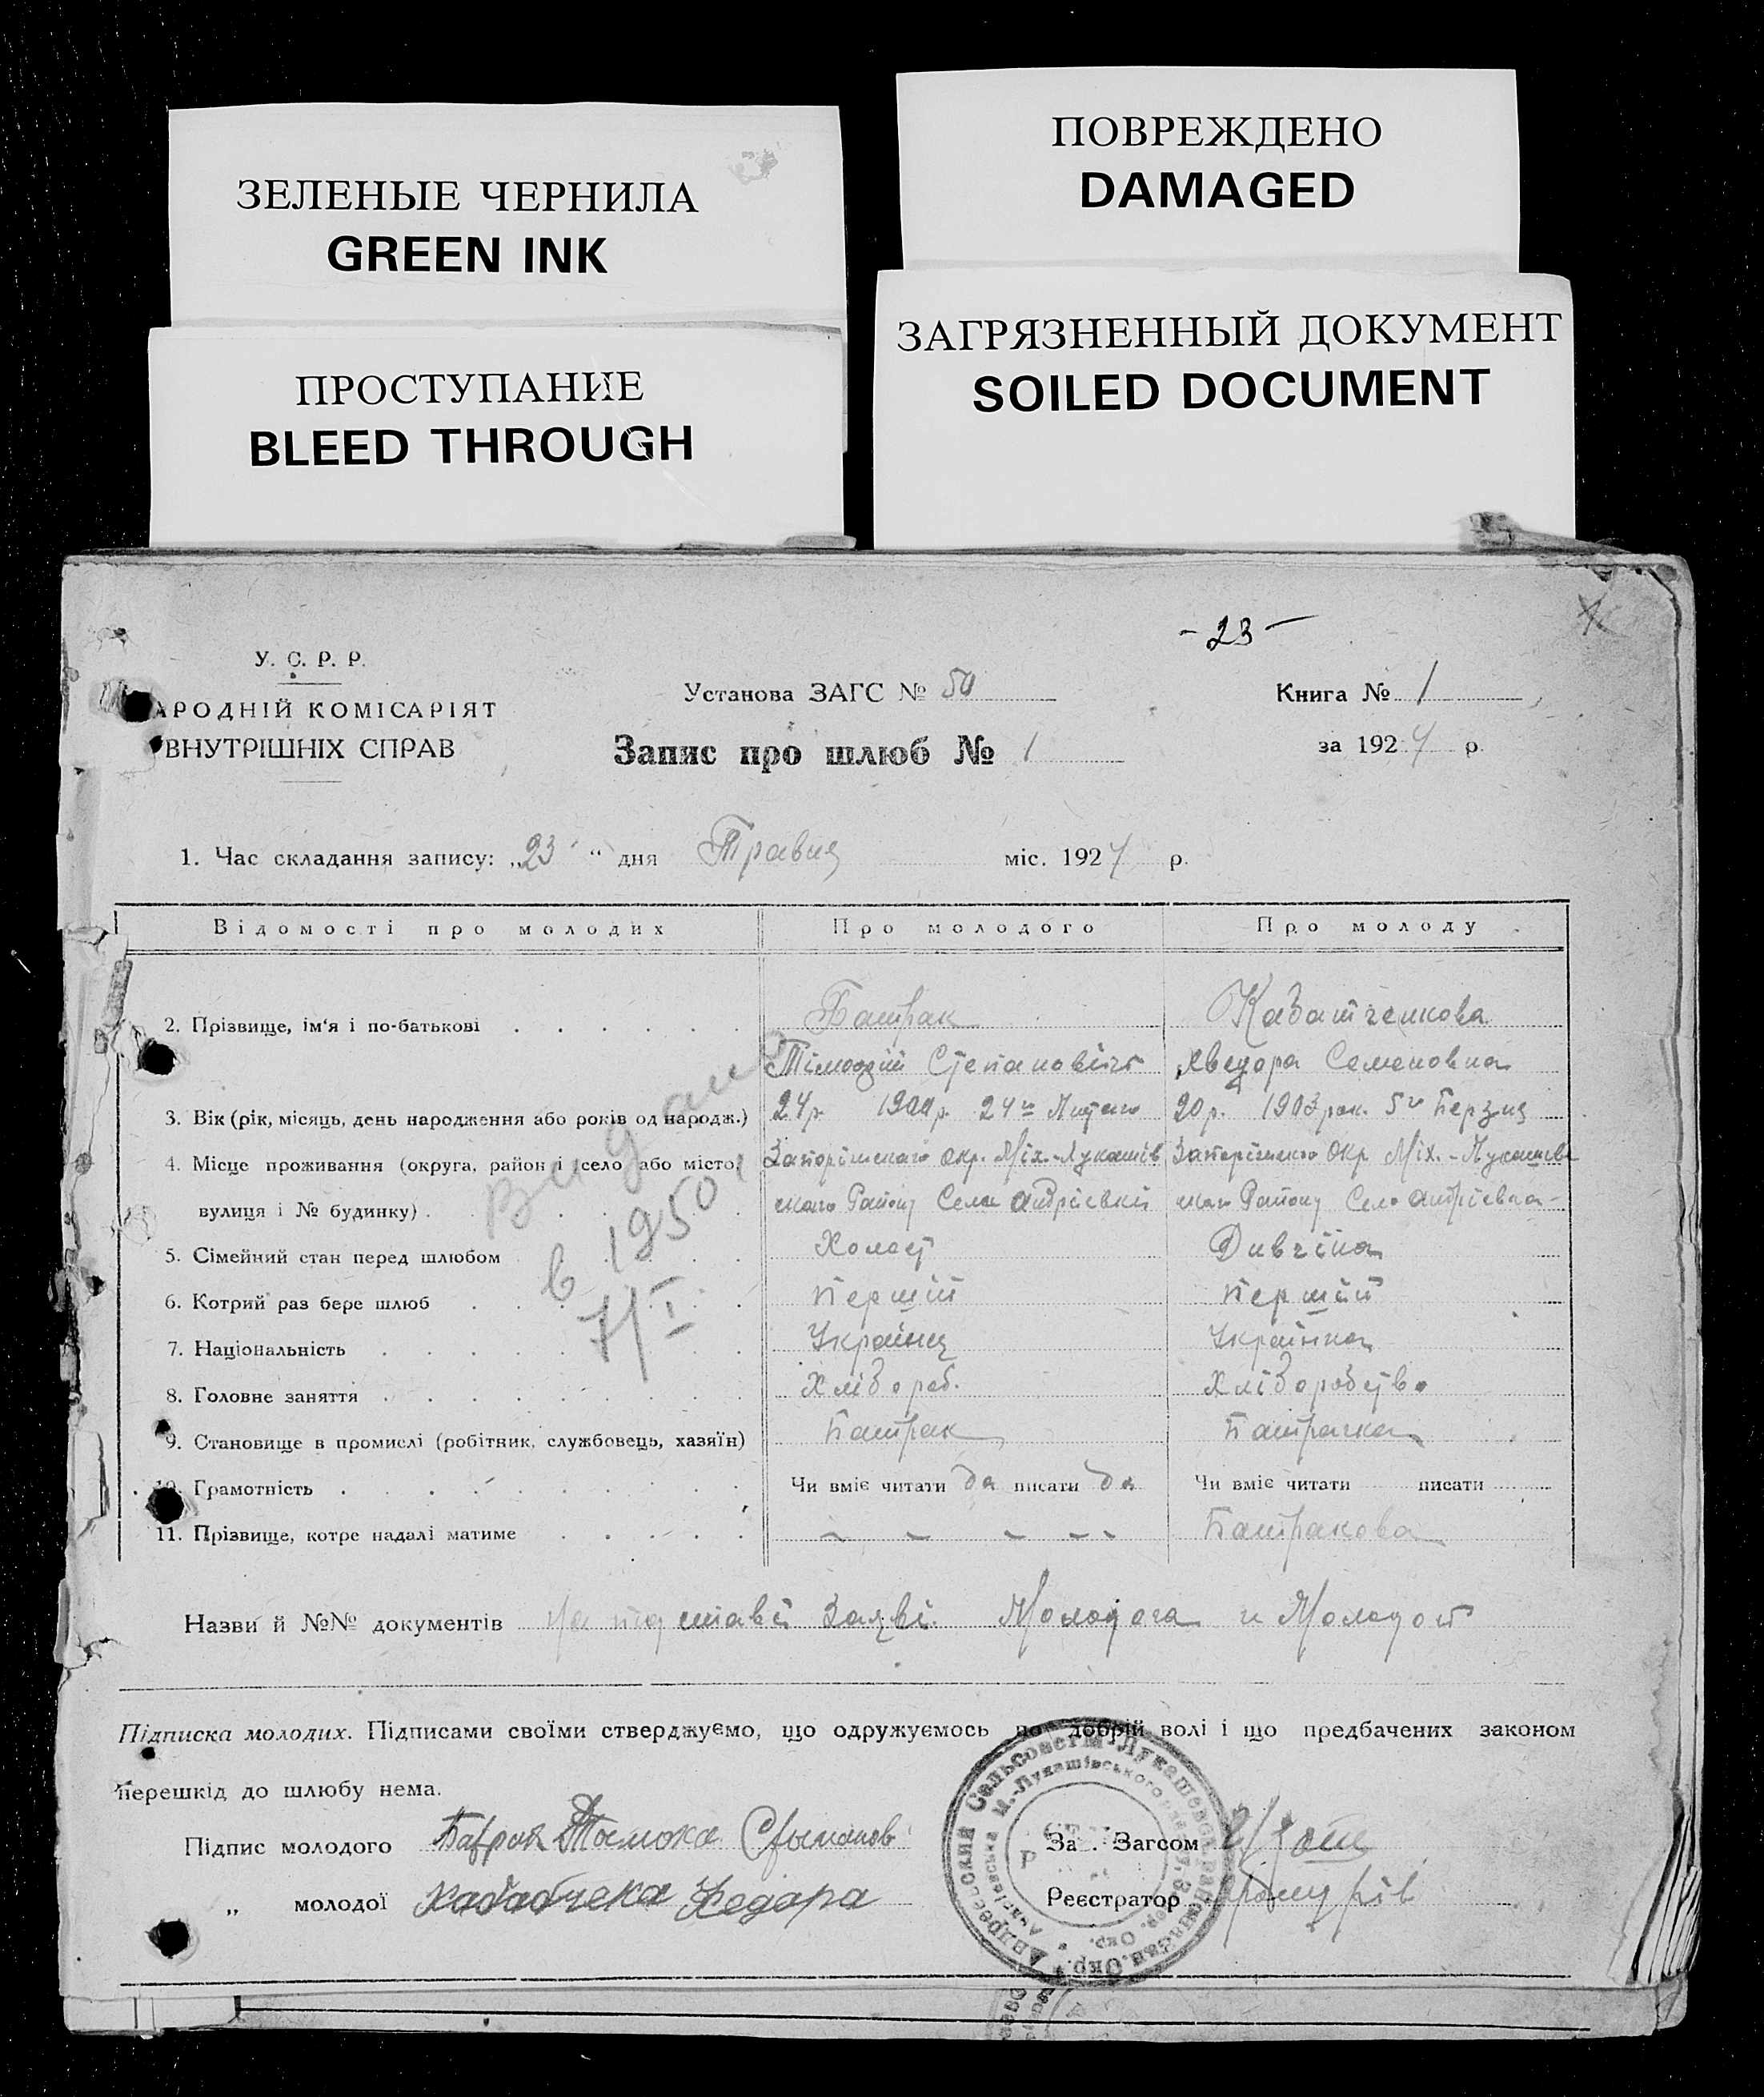 ЗЕЛЕНЫЕ ЧЕРНИЛА
GREEN INK
ПРОСТУПАНИЕ
BLEED THROUGH
ПОВРЕЖДЕНО
DAMAGED
ЗАГРЯЗНЕННЫЙ ДОКУМЕНТ
SOILED DOCUMENT
- 23 -
У. С. Р. Р.
АРОДНІЙ КОМІСАРІЯТ
ВНУТРІШНІХ СПРАВ
Установа ЗАГС № 50
Запис про шлюб № 1
Книга № 1
за 1924 р.
1. Час складання запису: „23“ дня Травня міс. 1924 р.
Відомості про молодих Про молодого Про молоду
2. Прізвище, ім'я і по-батькові Батрак
Тімофій Степановічъ Хведора Семеновна
3. Вік (рік, місяць, день народження або років од народж.) 24 р. 1900 р. 24го Лютаго 20 р. 1903 рок. 5го Берзня
4. Місце проживання (округа, район і село або місто, Запоріжскаго Окр. Міх.-Лукашів Запоріжского Окр Міх.-Лукашев
вулиця і № будинку) скаго Району Села Андріевкі скаго Району Село Андріевка-
5. Сімейний стан перед шлюбом Холост Дивчіна
6. Котрий раз бере шлюб першій першій
7. Національність Україңц Українка
8. Головне заняття Хлібороб. Хліборобство
9. Становище в промислі (робітник, службовець, хазяїн) Батрак Батрачка
10. Грамотність Чи вміє читати да писати да Чи вміє читати писати
11. Прізвище, котре надалі матиме – – – – – Батракова
Видано
в 1950
7/I
Назви й №№ документів На підставі Заяві Молодога и Молодой
Підписка молодих. Підписами своїми стверджуємо, що одружуємось по добрій волі і що предбачених законом
перешкід до шлюбу нема.
Підпис молодого Батрак
„ молодої Хабабчека Хедора
За . Загсом
Реєстратор